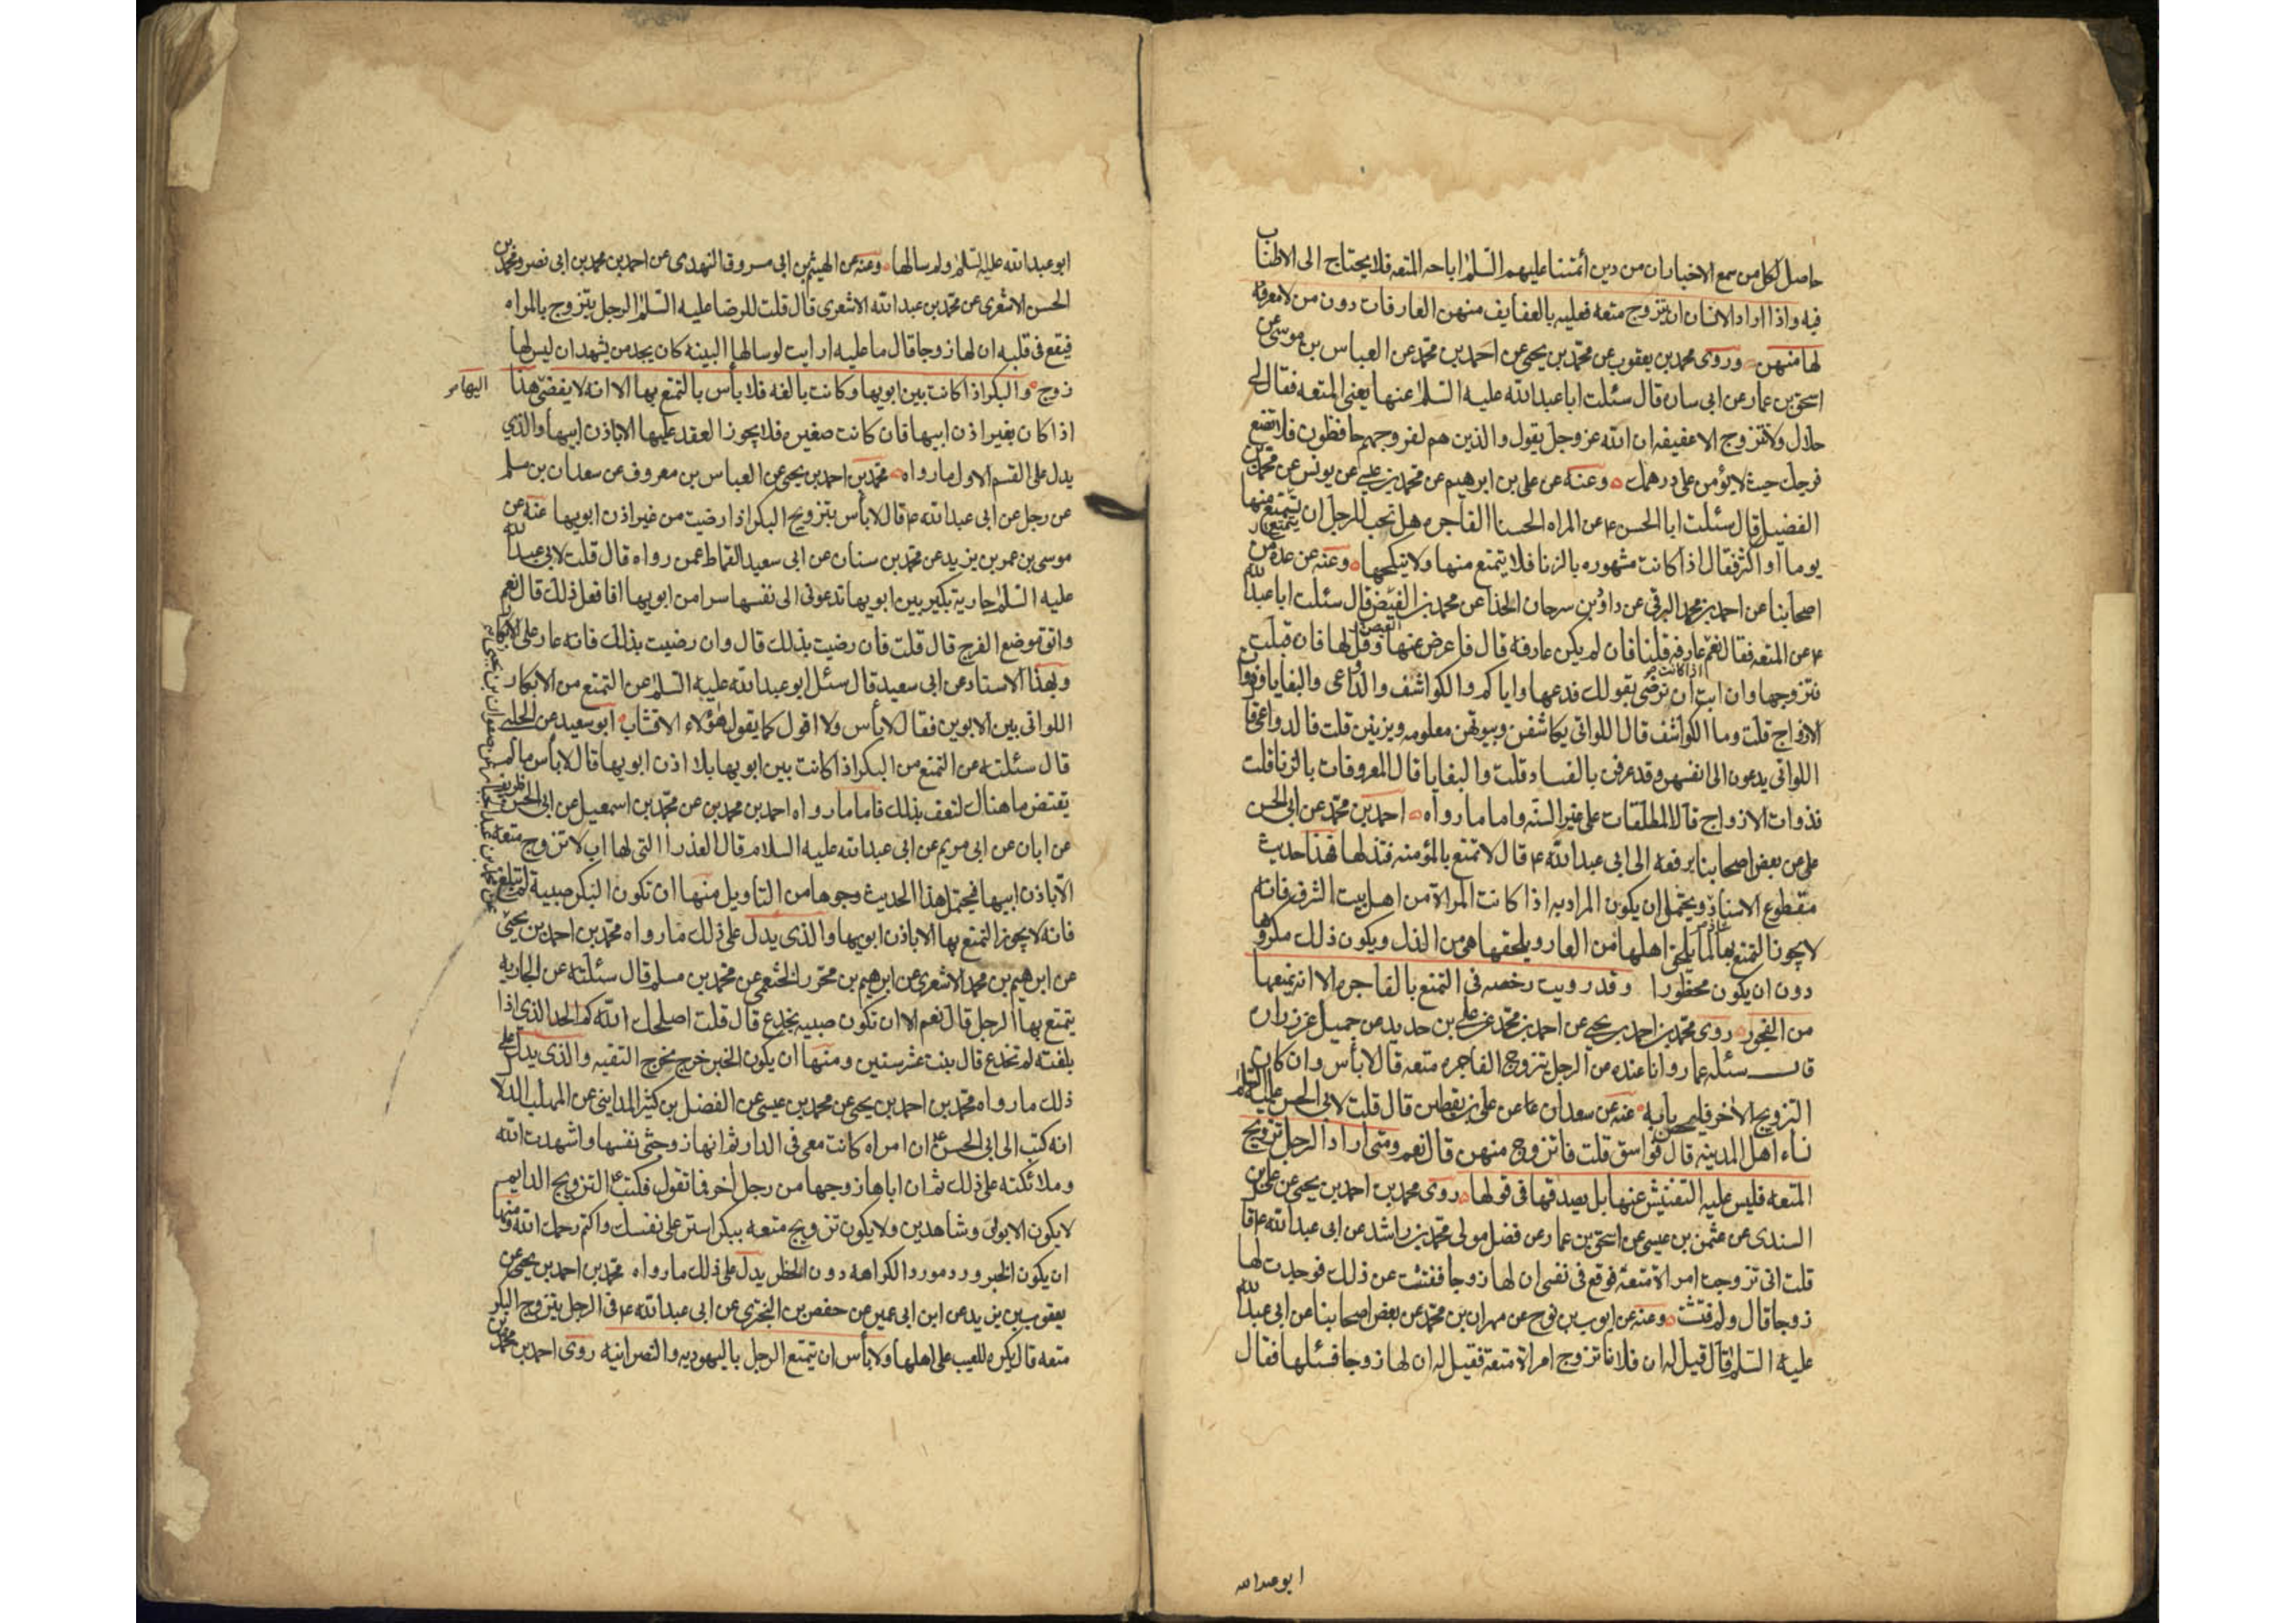 حاصل لكل من سمع الاخبار ان من دين أئمتنا عليهم السلم اباحه المتعه فلا يحتاج الى الاطناب
فيه واذا اراد الانسان ان يتزوج متعه فعليه بالعفايف منهن العارفات دون من لا معرفة
لها منهن وروى محمد بن يعقوب عن محمد بن يحيى عن احمد بن محمد عن العباس بن موسى عن
اسحق بن عمار عن ابى سان قال سئلت ابا عبد الله عليه السلم عنها يعنى المتعه فقال لى
حلال ولا تتزوج الا عفيفه ان الله عز وجل يقول والذين هم لفروجهم حافظون فلا تضع
فرجك حيث لا يؤمن على درهمك وعنه عن على بن ابرهيم عن محمد بن عيسى عن يونس عن محمد بن
الفضيل قال سئلت ابا الحسن ع عن المراه الحسنا الفاجره هل تحب للرجل ان يتمتع منها
يوما او اكثر فقال اذا كانت مشهوره بالزنا فلا يتمتع منها ولا ينكحها وعنه عن عدة من
اصحابنا عن احمد بن محمد البرقى عن داود بن سرحان الحذا عن محمد بن الفيض قال سئلت ابا عبد الله
ع عن المتعه فقال نعم اذا كانت عارفه قلنا فان لم يكن عارفه قال فاعرض عنها وقل لها فان قبلت
فتزوجها وان ابت ان ترضى بقولك فدعها واياكم والكواشف والدواعى والبغايا وذوات
الازواج قلت وما الكواشف قال اللواتى يكاشفن وبيوتهن معلومه ويزنين قلت فالدواعى قا
اللواتى يدعون الى انفسهن وقد عرفن بالفساد قلت والبغايا قال المعروفات بالزنا قلت
فذوات الازواج قال المطلقات على غير السنه واما ما رواه احمد بن محمد عن ابى الحسن
على عن بعض اصحابنا يرفعه الى ابى عبد الله ع قال لا تمتع بالمؤمنه فتذلها فهذا حديث
مقطوع الاسناد ويحتمل ان يكون المراد به اذا كانت المراة من اهل بيت الشرف فانه
لا يجوز التمتع بها لما يلحق اهلها من العار ويلحقها هى من الذل ويكون ذلك مكروها
دون ان يكون محظورا وقد رويت رخصه فى التمتع بالفاجره الا انه يمنعها
من الفجور روى محمد بن احمد بن يحيى عن احمد بن محمد عن على بن حديد عن جميل عن زراره
قال سئله عمار وانا عنده عن الرجل يتزوج الفاجره متعه قال لا بأس وان كان
التزويج الاخر فليحصن بابه عنه عن سعدان عن على بن يقطين قال قلت لابى الحسن عليه السلم
نساء اهل المدينه قال فواسق قلت فاتزوج منهن قال نعم ومتى اراد الرجل تزويج
المتعه فليس عليه التفتيش عنها بل يصدقها فى قولها روى محمد بن احمد بن يحيى عن على بن
السندى عن عثمن بن عيسى عن اسحق بن عمار عن فضل مولى محمد بن راشد عن ابى عبد الله ع قا
قلت انى تزوجت امراة متعة فوقع فى نفسى ان لها زوجا ففتشت عن ذلك فوجدت لها
زوجا قال ولم فتشت وعنه عن ايوب بن نوح عن مهران بن محمد عن بعض اصحابنا عن ابى عبد الله
عليه السلم قال قيل له ان فلانا تزوج امراة متعة فقيل له ان لها زوجا فسئلها فقال
ابو عبد الله
ابو عبد الله عليه السلم ولم سالها وعنه عن الهيثم بن ابى مسروق النهدى عن احمد بن محمد بن ابى نصر ومحمد بن
الحسن الاشعرى عن محمد بن عبد الله الاشعرى قال قلت للرضا عليه السلم الرجل يتزوج بالمراه
فيقع فى قلبه ان لها زوجا قال ما عليه ارايت لو سالها البينه كان يجد من يشهد ان ليس لها
زوج والبكر اذا كانت بين ابويها وكانت بالغه فلا بأس بالتمتع بها الا انه لا يفضى هذا
اليها
اذا كان بغير اذن ابيها فان كانت صغيره فلا يجوز العقد عليها الا باذن ابيها والذي
يدل على القسم الاول ما رواه محمد بن احمد بن يحيى عن العباس بن معروف عن سعدان بن مسلم
عن رجل عن ابى عبد الله ع قال لا بأس بتزويج البكر اذا رضيت من غير اذن ابويها عنه عن
موسى بن عمر بن يزيد عن محمد بن سنان عن ابى سعيد القماط عمن رواه قال قلت لابى عبد الله
عليه السلم جارية بكر بين ابويها تدعونى الى نفسها سرا من ابويها افافعل ذلك قال نعم
واتق موضع الفرج قال قلت فان رضيت بذلك قال وان رضيت بذلك فانه عار على الابكار
وبهذا الاسناد عن ابى سعيد قال سئل ابو عبد الله عليه السلم عن التمتع من الابكار
اللواتى بين الابوين فقال لا بأس ولا اقول كما يقول هؤلاء الاقشاب ابو سعيد عن الحلبى
قال سئلته عن التمتع من البكر اذا كانت بين ابويها بلا اذن ابويها قال لا بأس ما لم
يقتض ما هناك لتعف بذلك فاما ما رواه احمد بن محمد بن عن محمد بن اسمعيل عن ابى الحسن ظريف
عن ابان عن ابى مريم عن ابى عبد الله عليه السلام قال العذرا التى لها اب لا تزوج متعة
الا باذن ابيها فيحتمل هذا الحديث وجوها من التأويل منها ان تكون البكر صبية لم تبلغ
فانه لا يجوز التمتع بها الا باذن ابويها والذى يدل على ذلك ما رواه محمد بن احمد بن يحيى
عن ابرهيم بن محمد الاشعرى عن ابرهيم بن محرز الخثعمى عن محمد بن مسلم قال سئلته عن الجاريه
يتمتع بها الرجل قال نعم الا ان تكون صبيه تخدع قال قلت اصلحك الله كم الحد الذى اذا
بلغته لم تخدع قال بنت عشر سنين ومنها ان يكون الخبر خرج مخرج التقيه والذى يدل على
ذلك ما رواه محمد بن احمد بن يحيى عن محمد بن عيسى عن الفضل بن كثير المداينى عن المهلب الدلا
انه كتب الى ابى الحسن ع ان امراه كانت معى فى الدار ثم انها زوجتنى نفسها واشهدت الله
وملائكته على ذلك ثم ان اباها زوجها من رجل آخر فما تقول فكتب ع التزويج الدايم
لا يكون الا بولى وشاهدين ولا يكون تزويج متعه ببكر استر على نفسك واكتم رحمك الله ومنها
ان يكون الخبر ورد مورد الكراهه دون الحظر يدل على ذلك ما رواه محمد بن احمد بن يحيى عن
يعقوب بن يزيد عن ابن ابى عمير عن حفص بن البخترى عن ابى عبد الله ع فى الرجل يتزوج البكر
متعه قال يكره للعيب على اهلها ولا بأس ان يتمتع الرجل باليهوديه والنصرانيه روى احمد بن محمد بن